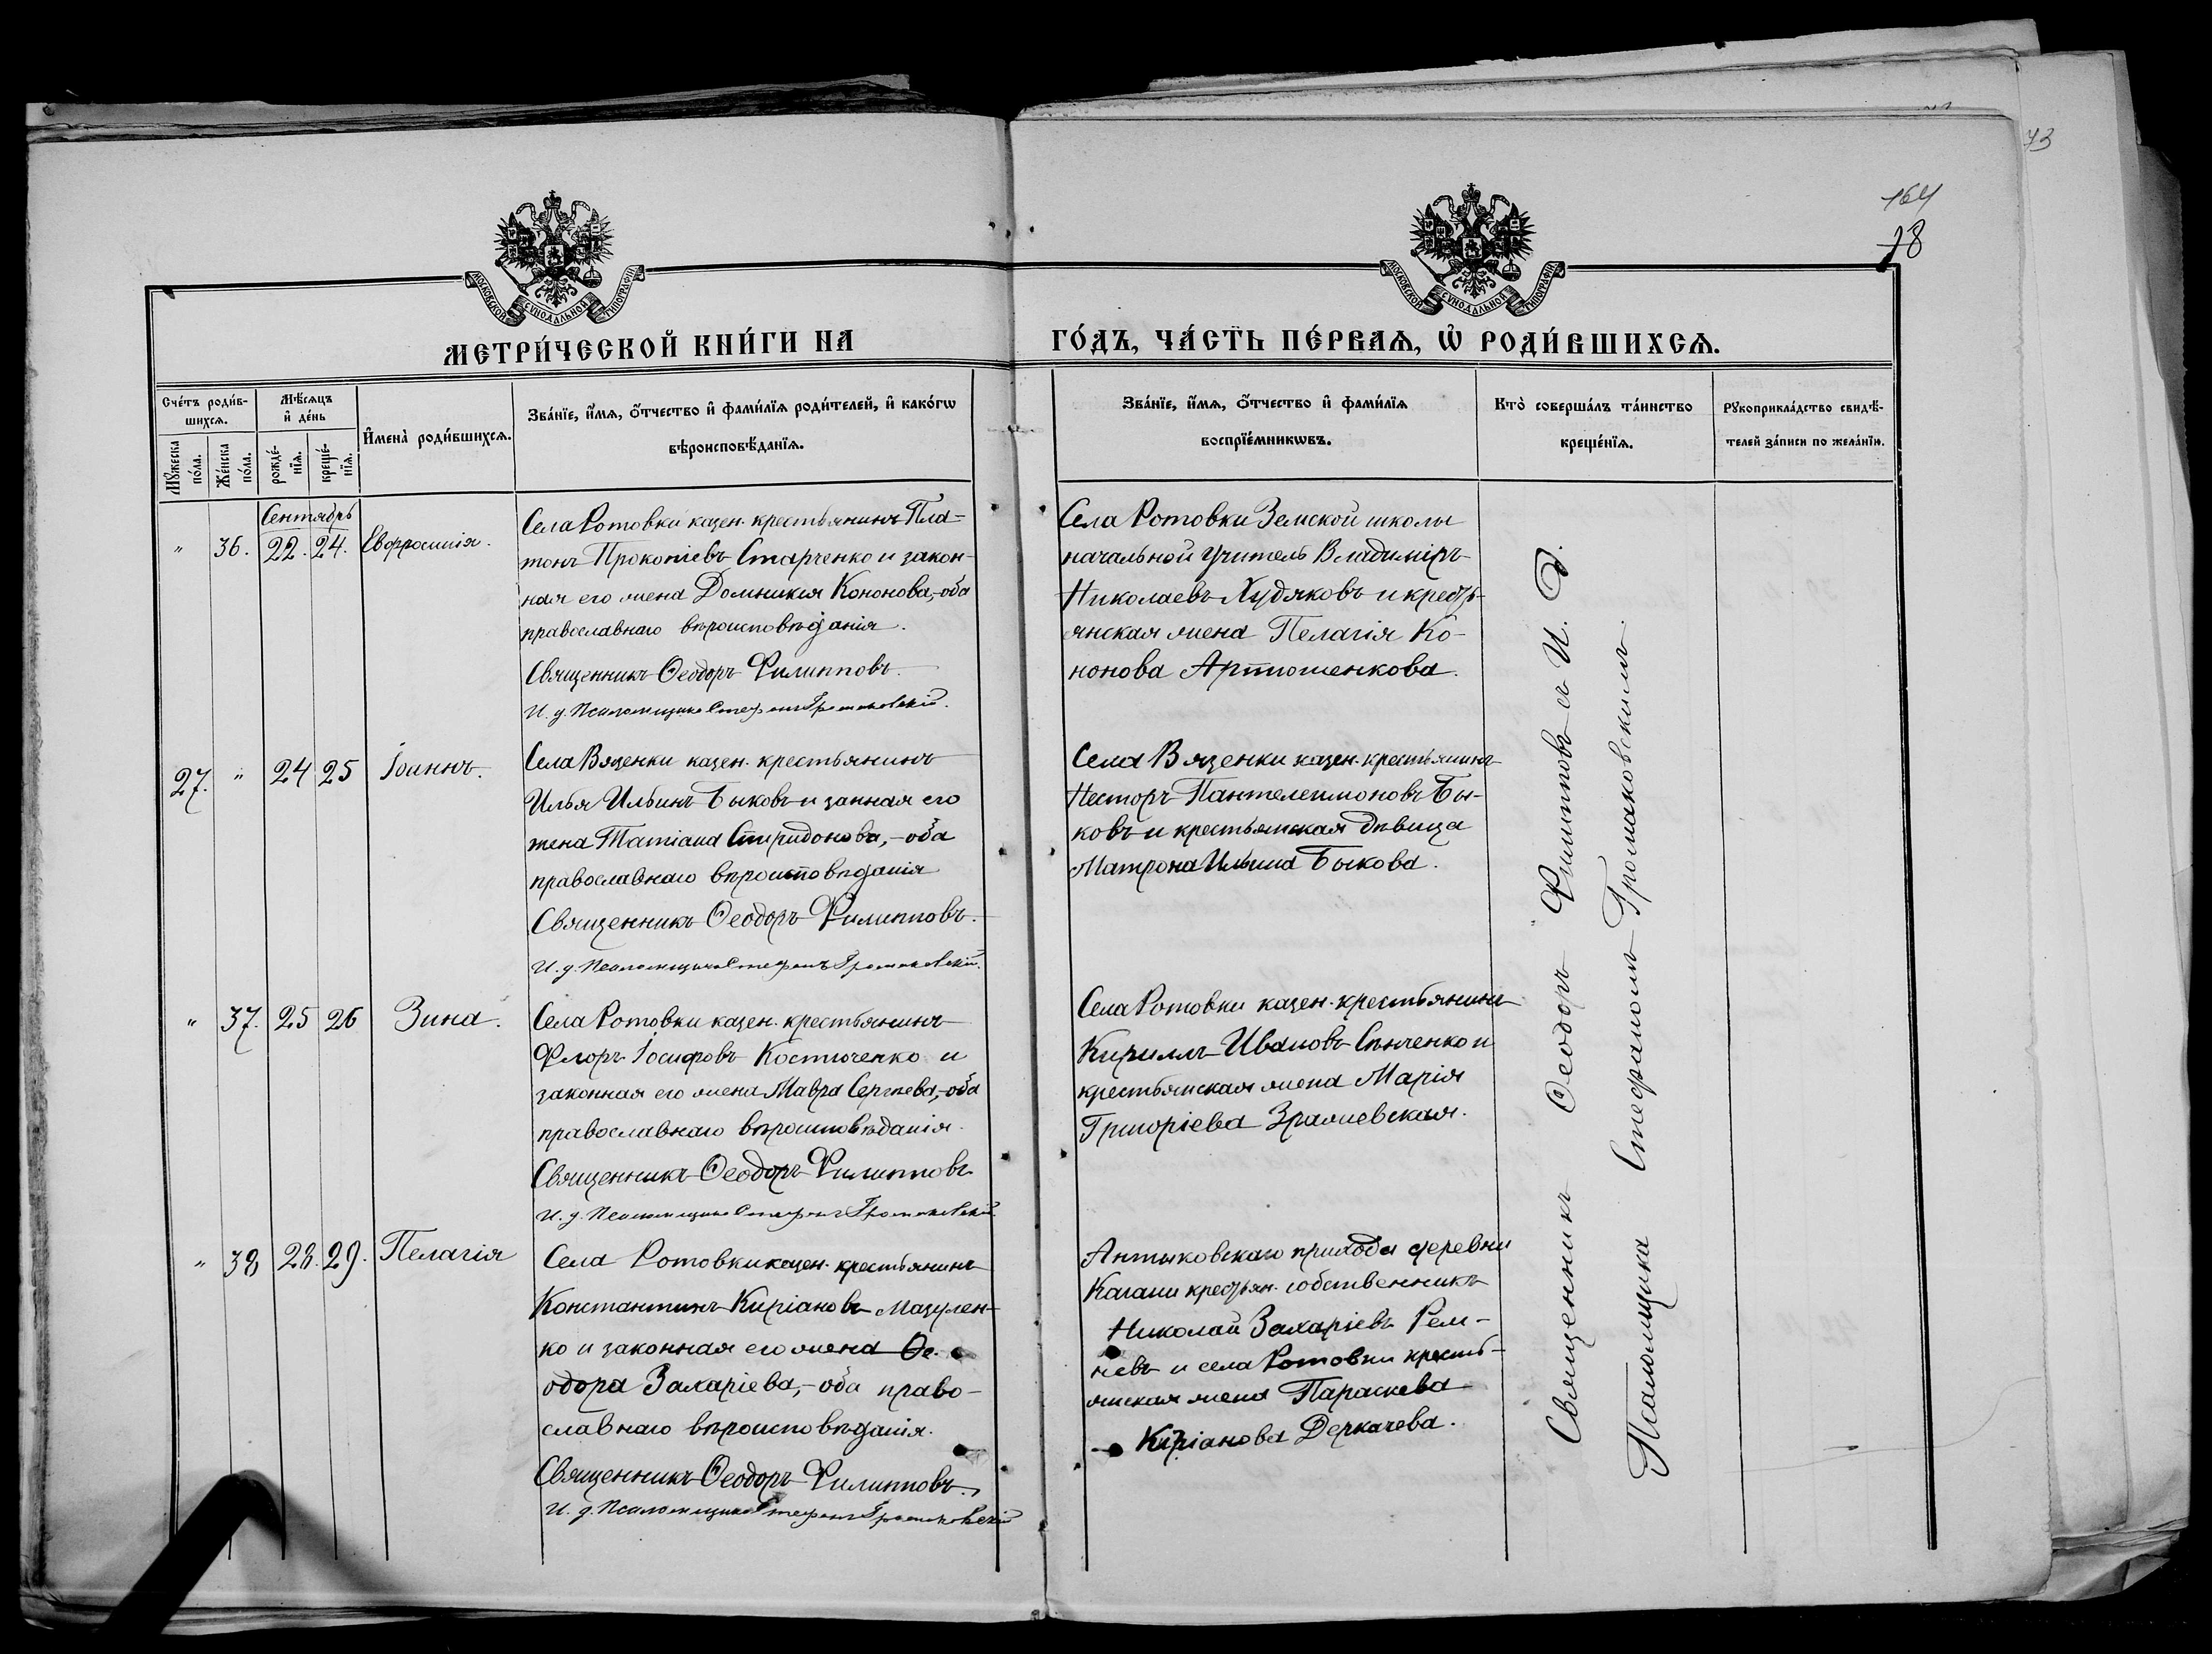 73
164
18
МОСКОВСКОЙ СУНОДАЛЬНОЙ ТИПОГРАФІИ
МОСКОВСКОЙ СУНОДАЛЬНОЙ ТИПОГРАФІИ
МЕТРИ́ЧЕСКОЙ КНИ́ГИ НА
ГО́ДЪ, ЧА́СТЬ ПЕ́РВАѦ, Ѡ҆ РОДИ́ВШИХСѦ.
Сче́тъ роди́в-
шихсѧ.
Мꙋ́жеска
по́ла.
Же́нска
по́ла.
Мѣ́сѧцъ
и҆ де́нь
рожде́-
нїѧ.
креще́-
нїѧ.
И҆мена̀ роди́вшихсѧ.
Зва́нїе, и҆́мѧ, ѻ҆́тчество и҆ фами́лїѧ роди́телей, и҆ како́гѡ
вѣроисповѣ́данїѧ.
Зва́нїе, и҆́мѧ, ѻ҆́тчество и҆ фами́лїѧ
воспрїе́мникѡвъ.
Кто̀ соверша́лъ та́инство
креще́нїѧ.
Рꙋкоприкла́дство свидѣ́-
телей за́писи по жела́нїю.
Сентябрь
" 36. 22. 24. Евфросинія.
Села Ротовки казен. крестьянинъ Пла-
тонъ Прокопіевъ Старченко и закон-
ная его жена Домникія Кононова,-оба
православнаго вѣроисповѣданія.
Священникъ Ѳеодоръ Филипповъ.
И. д. Псаломщика Стефанъ Громаковскій.
Села Ротовки Земской школы
начальной учитель Владиміръ
Николаевъ Худяковъ и кресть-
янская жена Пелагія Ко-
нонова Артюшенкова.
27. " 24 25 Іоаннъ.
Села Вязенки казен. крестьянинъ
Илья Ильинъ Быковъ и занная его
жена Татіана Спиридонова,-оба
православнаго вѣроисповѣданія
Священникъ Ѳеодоръ Филипповъ.
И. д. Псаломщика Стефанъ Громаковскій.
Села Вязенки казен. крестьянинъ
Несторъ Пантелеимоновъ Бы-
ковъ и крестьянская дѣвица
Матрона Ильина Быкова.
" 37. 25 26 Зина.
Села Ротовки казен. крестьянинъ
Флоръ Іосифовъ Костюченко и
законная его жена Мавра Сергѣева,-оба
православнаго вѣроисповѣданія.
Священникъ Ѳеодоръ Филипповъ
И. д. Псаломщика Стефанъ Громаковскій
Села Ротовки казен. крестьянинъ
Кирилъ Ивановъ и
крестьянская жена Марія
Григоріева Зражевская.
" 38 28. 29. Пелагія
Села Ротовки казен. крестьянинъ
Константинъ Кипріановъ Мазулен-
ко и законная его жена Ѳе-
одора Захаріева,-оба право-
славнаго вѣроисповѣданія.
Священникъ Ѳеодоръ Филипповъ.
И. д. Псаломщика Стефанъ Громаковскій
Антыковскаго прихода деревни
кресьян. собственникъ
Николай Захаріевъ Рем-
невъ и села Ротовки кресть-
янская жена Параскева
Кипріанова Деркачева.
Священникъ Ѳеодоръ Филипповъ съ И. Д.
Псаломщика Стефаномъ Громаковскимъ.